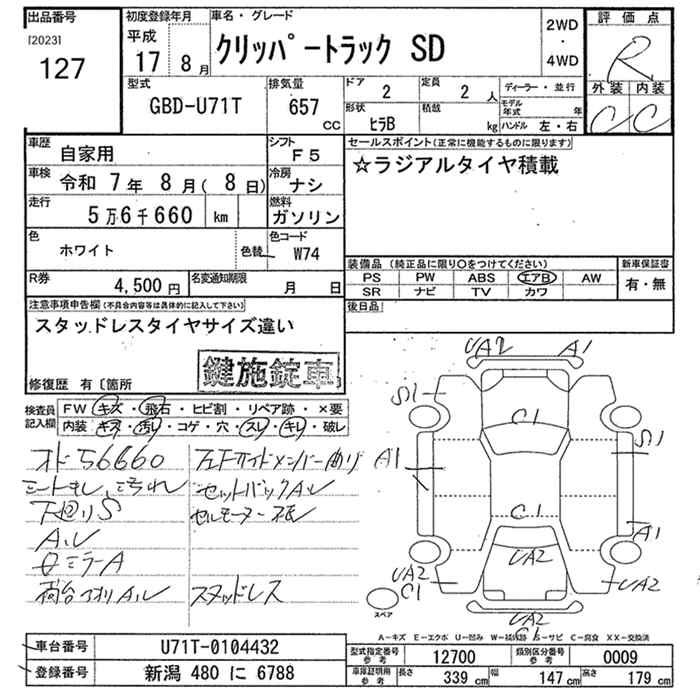 出品番号
[2023]
127
初度登録年月
平成
17 8月
車名・グレード
クリッパートラック SD
2WD
・
4WD
評価点
R
外装 内装
C C
型式
GBD-U71T
排気量
657 CC
ドア
2
定員
2人
形状
ヒラB
積載
kg
ディーラー・並行
モデル年式 年
ハンドル 左・右
車歴
自家用
シフト
F5
車検
令和 7年 8月( 8日)
冷房
ナシ
走行
5万6千660 km
燃料
ガソリン
色
ホワイト
色替
色コード
W74
R券
4,500円
名変通知期限
月 日
セールスポイント(正常に機能するものに限ります)
☆ラジアルタイヤ積載
装備品(純正品に限り〇をつけてください)
新車保証書
PS PW ABS エアB AW
SR ナビ TV カワ
有・無
後日品
注意事項申告欄(不具合内容等は具体的に記入して下さい)
スタッドレスタイヤサイズ違い
鍵施錠車
修復歴 有〔箇所
検査員記入欄
FW キズ・飛石・ヒビ割・リペア跡・×要
内装・キズ・汚レ・コゲ・穴・スレ・キレ・破レ
オド56660
下回りS
セットバックAル
Aル
荷台アオリAル
スタッドレス
UA2 A1
S1
C1
S1
A1
C1
A1
UA2
UA2
C1
UA2
UA2
C1
スペア
A−キズ E−エクボ U−凹み W−補修跡 S−サビ C−腐食 XX−交換済
車台番号
U71T-0104432
登録番号
新潟 480 に 6788
型式指定番号参考
12700
類別区分番号参考
0009
車庫証明用参考
長さ 339 cm
幅 147 cm
高さ 179 cm